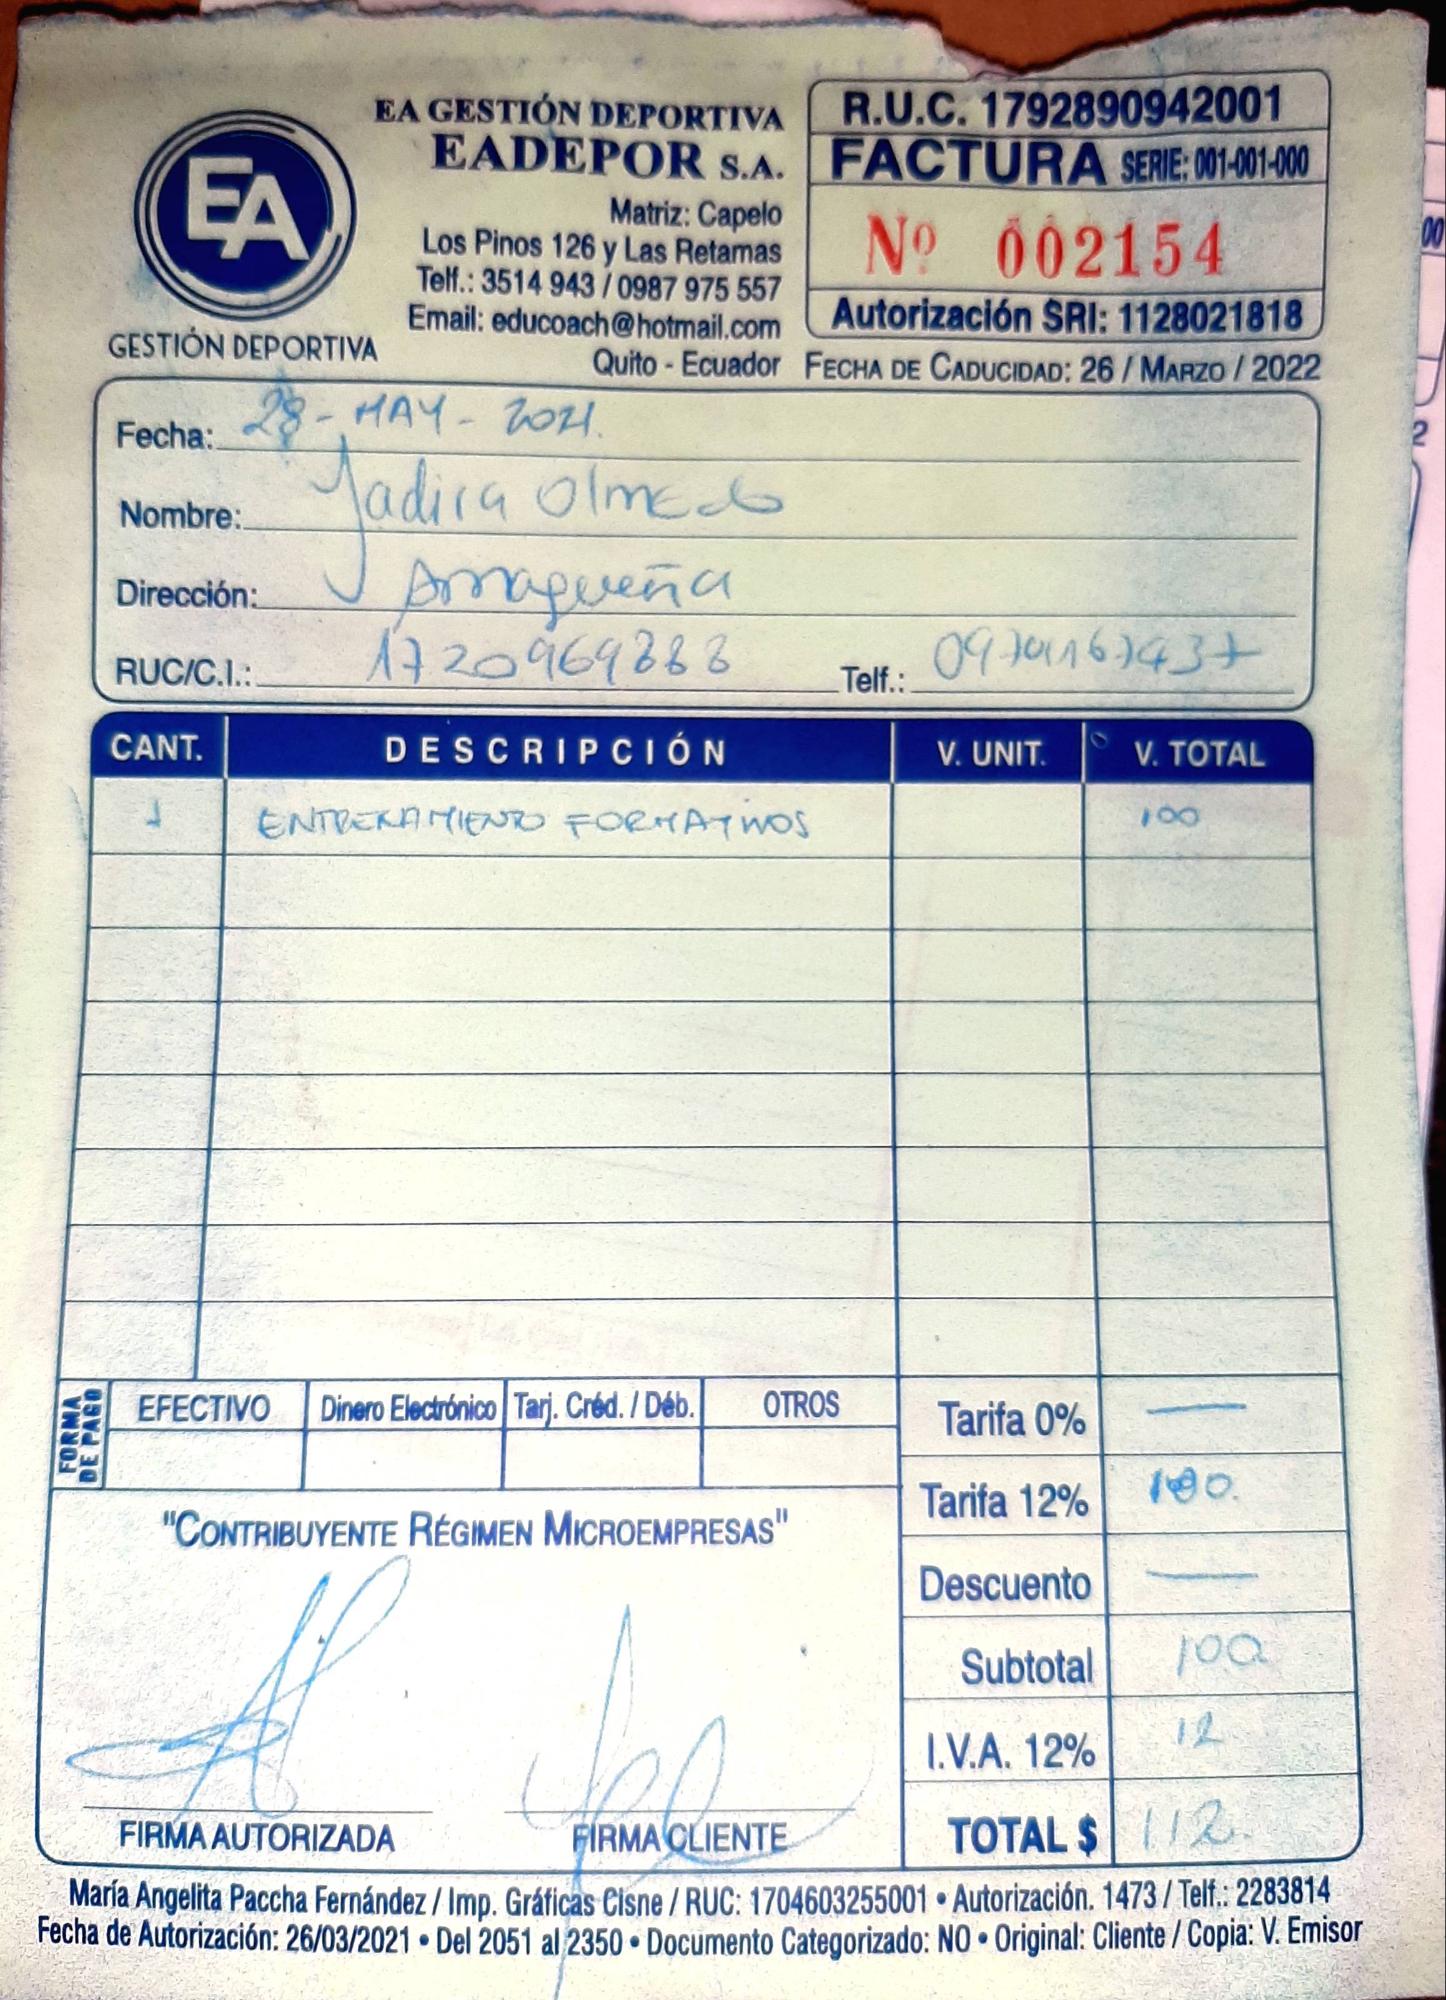 EA
GESTIÓN DEPORTIVA
EA GESTIÓN DEPORTIVA
EADEPOR S.A.
Matriz: Capelo
Los Pinos 126 y Las Retamas
Telf.: 3514 943 / 0987 975 557
Email: educoach@hotmail.com
Quito - Ecuador
R.U.C. 1792890942001
FACTURA SERIE: 001-001-000
Nº 002154
Autorización SRI: 1128021818
FECHA DE CADUCIDAD: 26 / MARZO / 2022
Fecha: 28 - MAY - 2021.
Nombre: Yadira Olmedo
Dirección:
RUC/C.I.: 1720969888 Telf.:
CANT. DESCRIPCIÓN V. UNIT. V. TOTAL
1 ENTRENAMIENTO FORMATIVOS 100
FORMA DE PAGO
EFECTIVO Dinero Electrónico Tarj. Créd. / Déb. OTROS
Tarifa 0% —
Tarifa 12% 100.
"CONTRIBUYENTE RÉGIMEN MICROEMPRESAS"
Descuento —
Subtotal 100
I.V.A. 12% 12
TOTAL $ 112.
FIRMA AUTORIZADA FIRMA CLIENTE
María Angelita Paccha Fernández / Imp. Gráficas Cisne / RUC: 1704603255001 • Autorización. 1473 / Telf.: 2283814
Fecha de Autorización: 26/03/2021 • Del 2051 al 2350 • Documento Categorizado: NO • Original: Cliente / Copia: V. Emisor